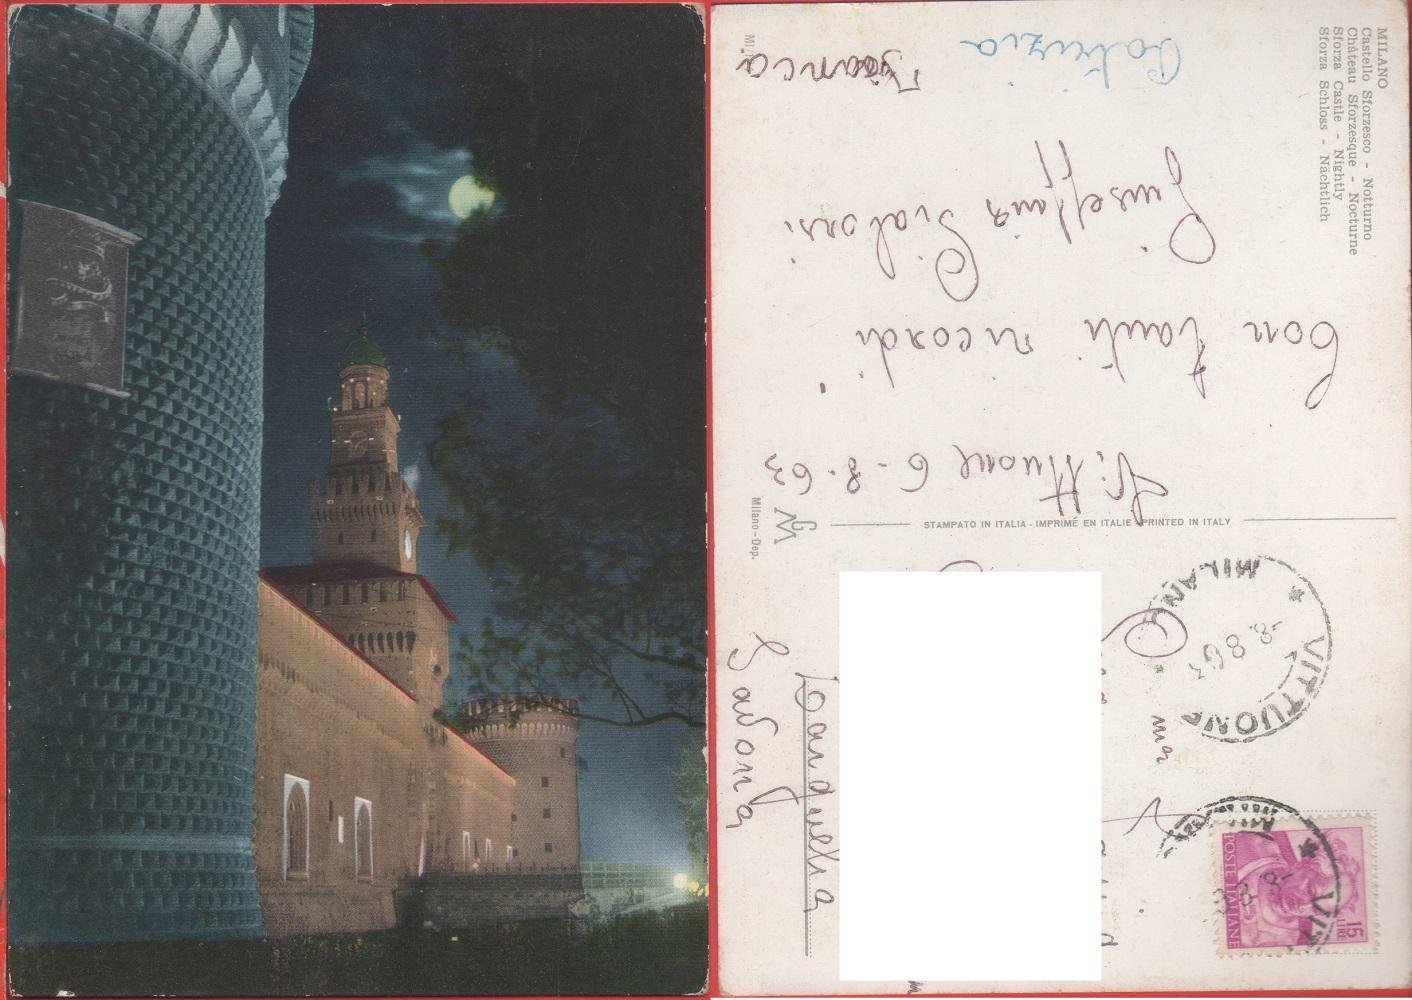 MILANO
Castello Sforzesco - Notturno
Château Sforzesque - Nocturne
Sforza Castle - Nightly
Sforza Schloss - Nächtlich
Vittuone 6-8-63
Con tanti ricordi
Patrizia
Franca
STAMPATO IN ITALIA - IMPRIMÉ EN ITALIE - PRINTED IN ITALY
Milano - Dep.
VITTUONE
MILANO
8-8 63
15
LIRE
POSTE ITALIANE
Laigueglia
Savona